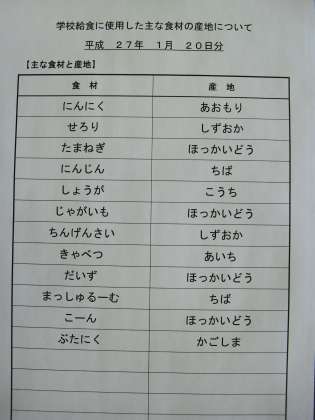 学校給食に使用した主な食材の産地について
平成　２７年　１月　２０日分
【主な食材と産地】
食　材　産　地
にんにく　あおもり
せろり　しずおか
たまねぎ　ほっかいどう
にんじん　ちば
しょうが　こうち
じゃがいも　ほっかいどう
ちんげんさい　しずおか
きゃべつ　あいち
だいず　ほっかいどう
まっしゅるーむ　ちば
こーん　ほっかいどう
ぶたにく　かごしま